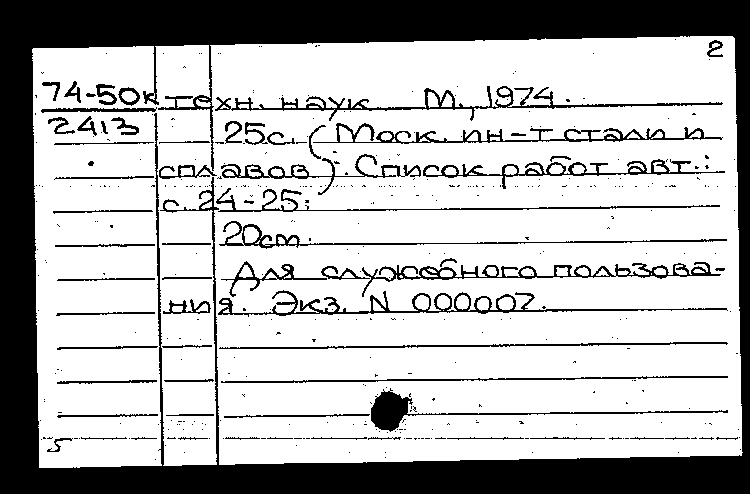 2
74-50к техн. наук М., 1974.
2413 25с. (Моск. ин-т стали и
сплавов). Список работ авт.:
с. 24-25.
20см.
Для служебного пользова-
ния. Экз. N 000007.
5